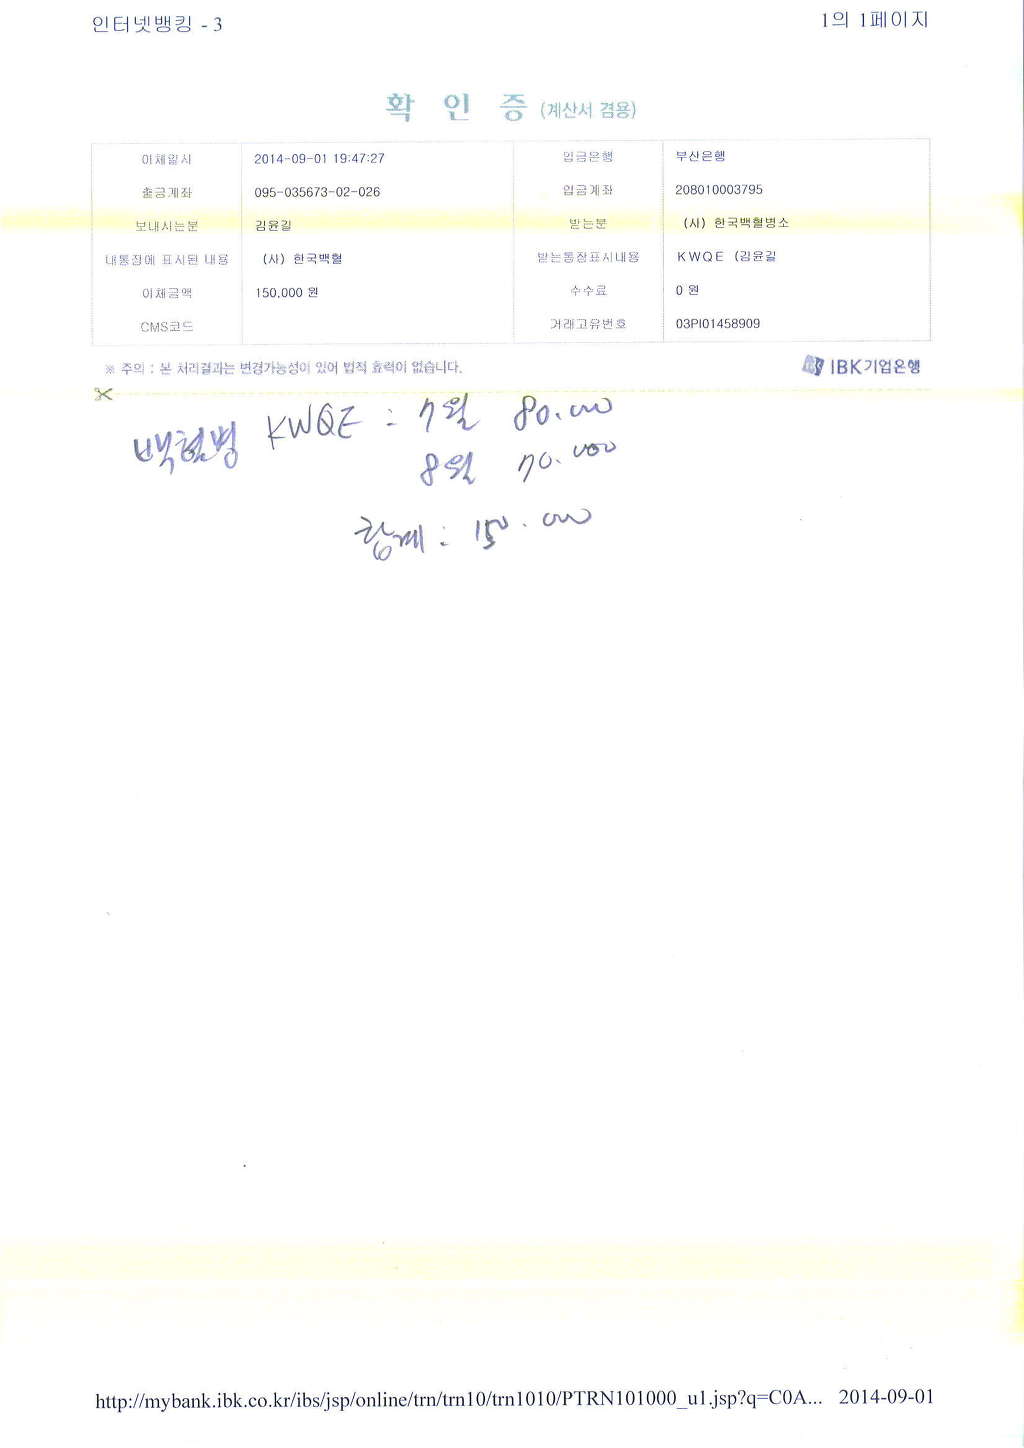 인터넷뱅킹 - 3
1의 1페이지
확 인 증 (계산서 겸용)
이체일시 2014-09-01 19:47:27 입금은행 부산은행
출금계좌 095-035673-02-026 입금계좌 208010003795
보내시는분 김윤길 받는분 (사) 한국백혈병소
내통장에 표시된 내용 (사) 한국백혈 받는통장표시내용 KWQE (김윤길
이체금액 150,000 원 수수료 0 원
CMS코드 거래고유번호 03PI01458909
※ 주의 : 본 처리결과는 변경가능성이 있어 법적 효력이 없습니다.
IBK기업은행
백혈병 KWQE : 7월 80.000
8월 70.000
합계 : 150.000
http://mybank.ibk.co.kr/ibs/jsp/online/trn/trn10/trn1010/PTRN101000_u1.jsp?q=C0A... 2014-09-01